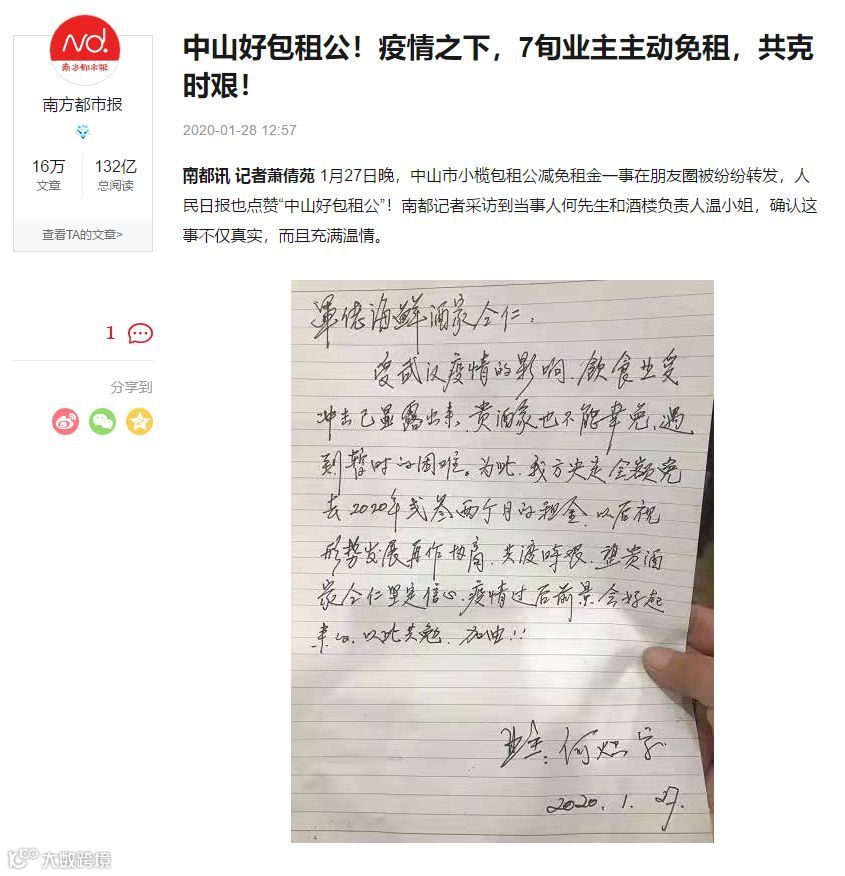 Nd.
南方都市报
南方都市报
16万
132亿
文章
总阅读
查看TA的文章>
1
分享到
中山好包租公！疫情之下，7旬业主主动免租，共克
时艰！
2020-01-28 12:57
南都讯 记者萧倩苑 1月27日晚，中山市小榄包租公减免租金一事在朋友圈被纷纷转发，人
民日报也点赞“中山好包租公”！南都记者采访到当事人何先生和酒楼负责人温小姐，确认这
事不仅真实，而且充满温情。
海鲜酒家仝仁：
受武汉疫情的影响、飲食业受
冲击已显露出来、贵酒家也不能幸免、遇
到暂时的困难。为此、我方决定全额免
去2020年弍叁两个月的租金、以后视
形势发展再作协商、共渡时艰、望贵酒
家仝仁坚定信心、疫情过后前景会好起
来的、以此共勉、加油!!
业主：何
2020.1.27.
大数跨境